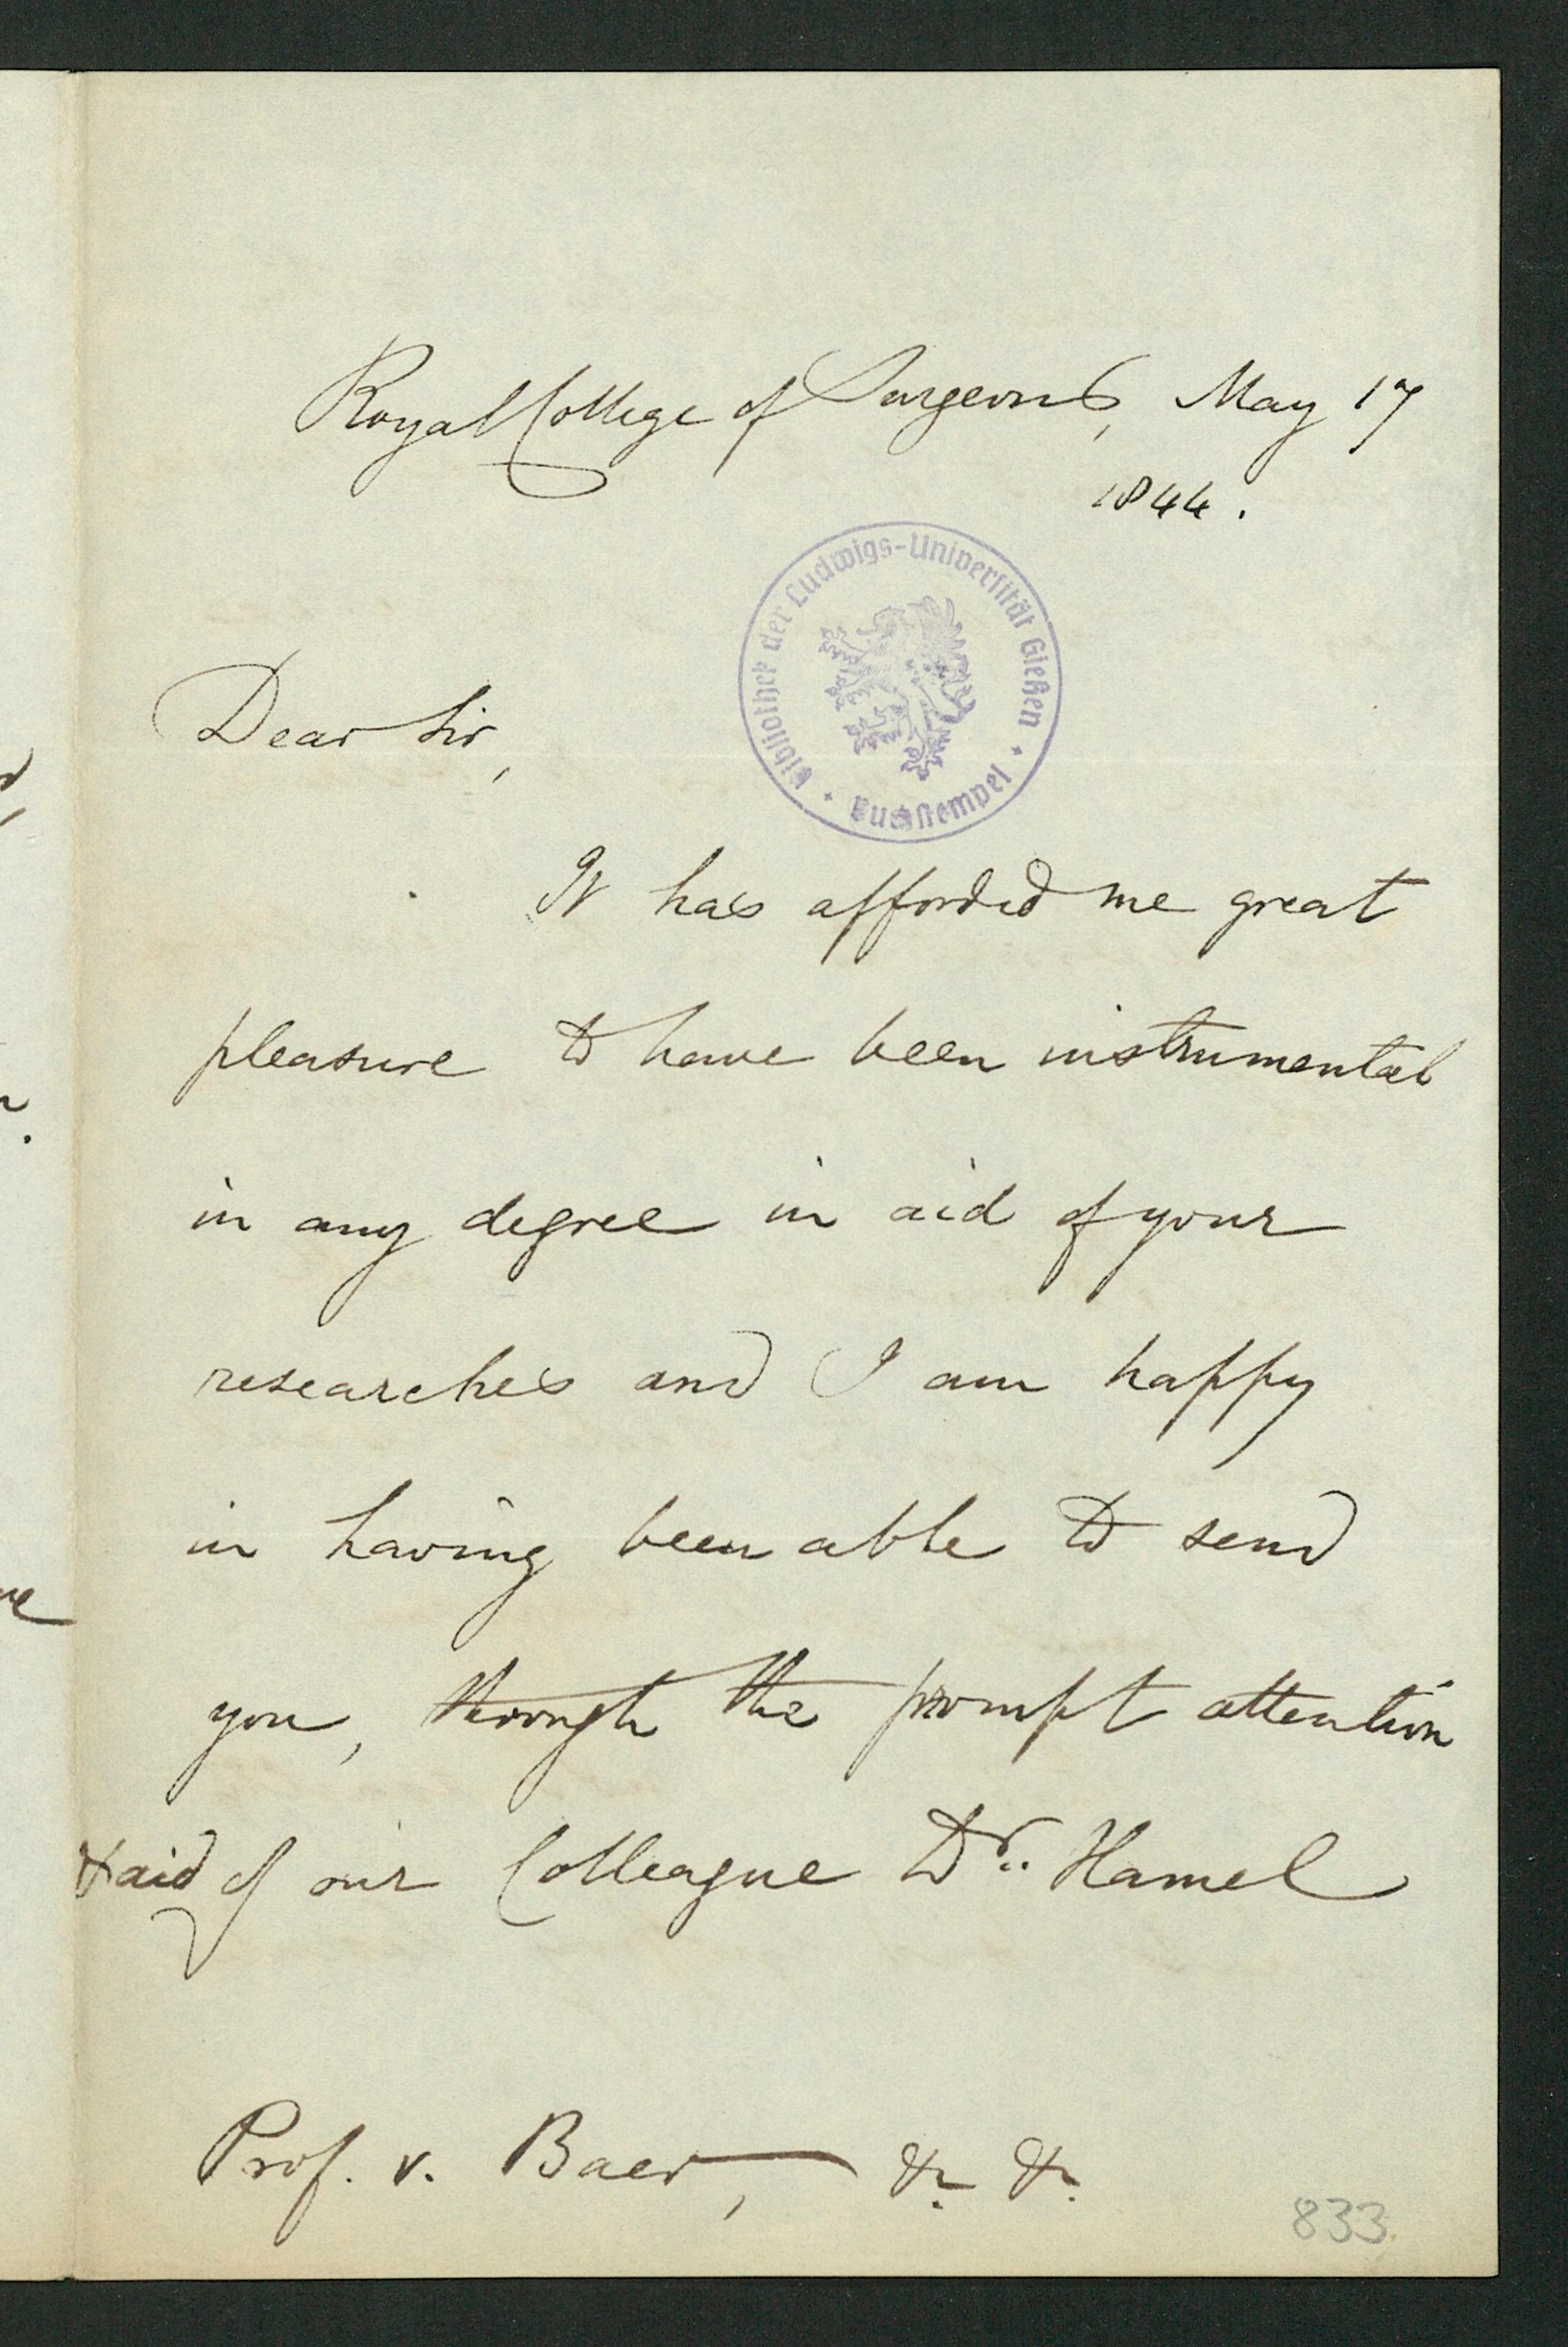 Royal College of Surgeons, May 17
1844.
Bibliothek der Ludwigs-Universität Gießen
Buchstempel
Dear Sir,
It has afforded me great
pleasure to have been instrumental
in any degree in aid of your
researches and I am happy
in having been able to send
you, through the prompt attention
& aid of our Colleague Dr. Hamel
Prof. v. Baer, &c. &c.
833.